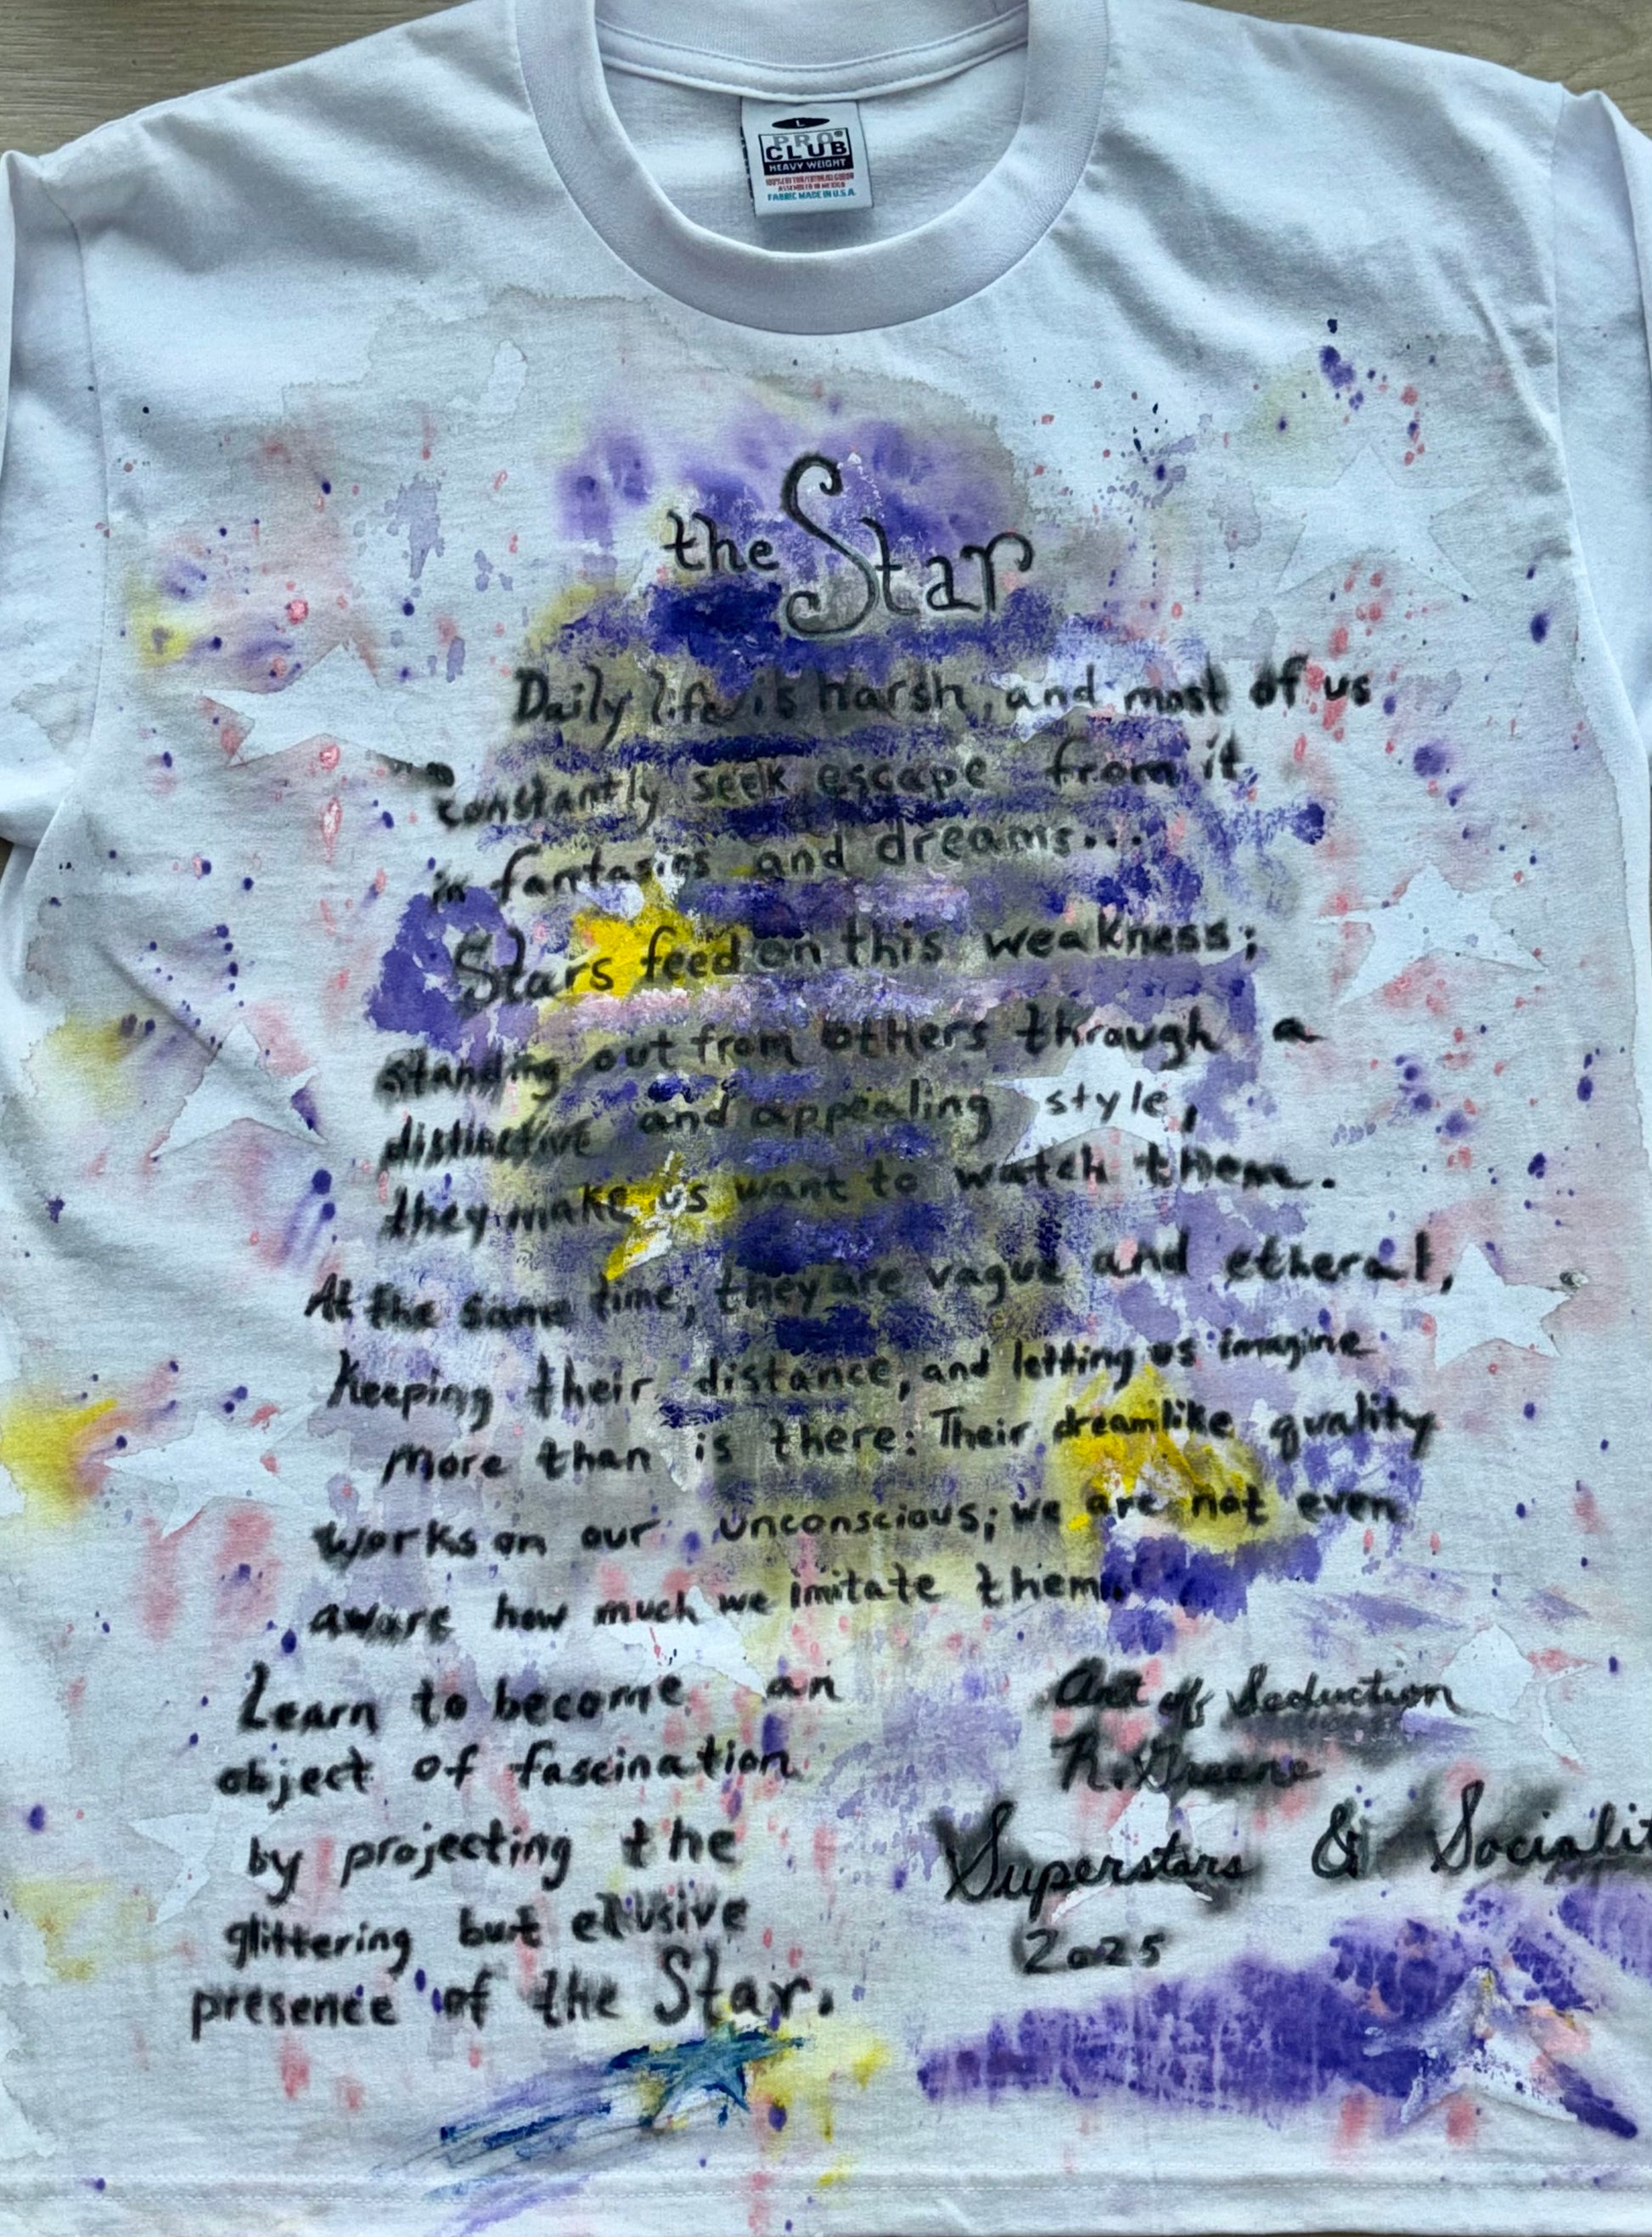 L
PRO
CLUB
HEAVY WEIGHT
ASSEMBLED IN MEXICO
FABRIC MADE IN U.S.A.
the Star
Daily life is harsh, and most of us
constantly seek escape from it
in fantasies and dreams...
Stars feed on this weakness;
standing out from others through a
distinctive and appealing style,
they make us want to watch them.
At the same time, they are vague and etheral,
Keeping their distance, and letting us imagine
more than is there: Their dreamlike quality
works on our unconscious; we are not even
aware how much we imitate them.
Learn to become an
object of fascination
by projecting the
glittering but elusive
presence of the Star.
Art of Seduction
R. Greene
Superstars & Socialit
2025